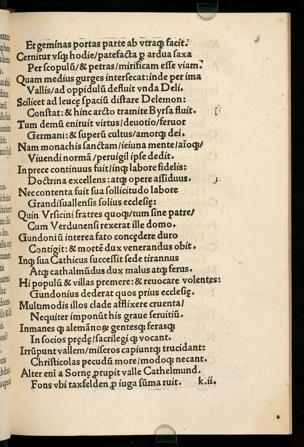 Et geminas portas parte ab vtraq; facit.
Cernitur vsq; hodie/patefacta p ardua saxa
Per scopulū/& petras/mirificam esse viam.
Quam medius gurges intersecat: inde per ima
Vallis/ad oppidulū defluit vnda Deli.
Scilicet ad leucę spaciū distare Delemon:
Constat: & hinc arcto tramite Byrsa fluit.
Tum demū enituit virtus/deuotio/feruor
Germani: & superū cultus/amorq; dei.
Nam monachis sanctam/ieiuna mente/aīoq;/
Viuendi normā/peruigil ipse dedit.
In prece continuus fuit/inq; labore fidelis:
Doctrina excellens: atq; opere assiduus.
Nec contenta fuit sua sollicitudo labore
Grandisuallensis solius ecclesię:
Quin Vrsicini fratres quoq;/tum sine patre/
Cum Verdunensi rexerat ille domo.
Gundoniū interea fato concędere duro
Contigit: & mortē dux venerandus obit.
Inq; sua Cathicus successit sede tirannus
Atq; cathalmūdus dux malus atq; ferus.
Hi populū & villas premere: & reuocare volentes:
Gundonius dederat quos prius ecclesię.
Multimodis illos clade afflixere cruenta/
Nequiter imponūt his graue seruitiū.
Inmanes q; alemānos q; gentesq; ferasq;
In socios prędę/sacrilegi q; vocant.
Irrūpunt vallem/miseros capiuntq; trucidant:
Christicolas pecudū more/modoq; necant.
Alter eni a Sornę prupit valle Cathelmund.
Fons vbi taxfelden p iuga sūma ruit. k.ii.